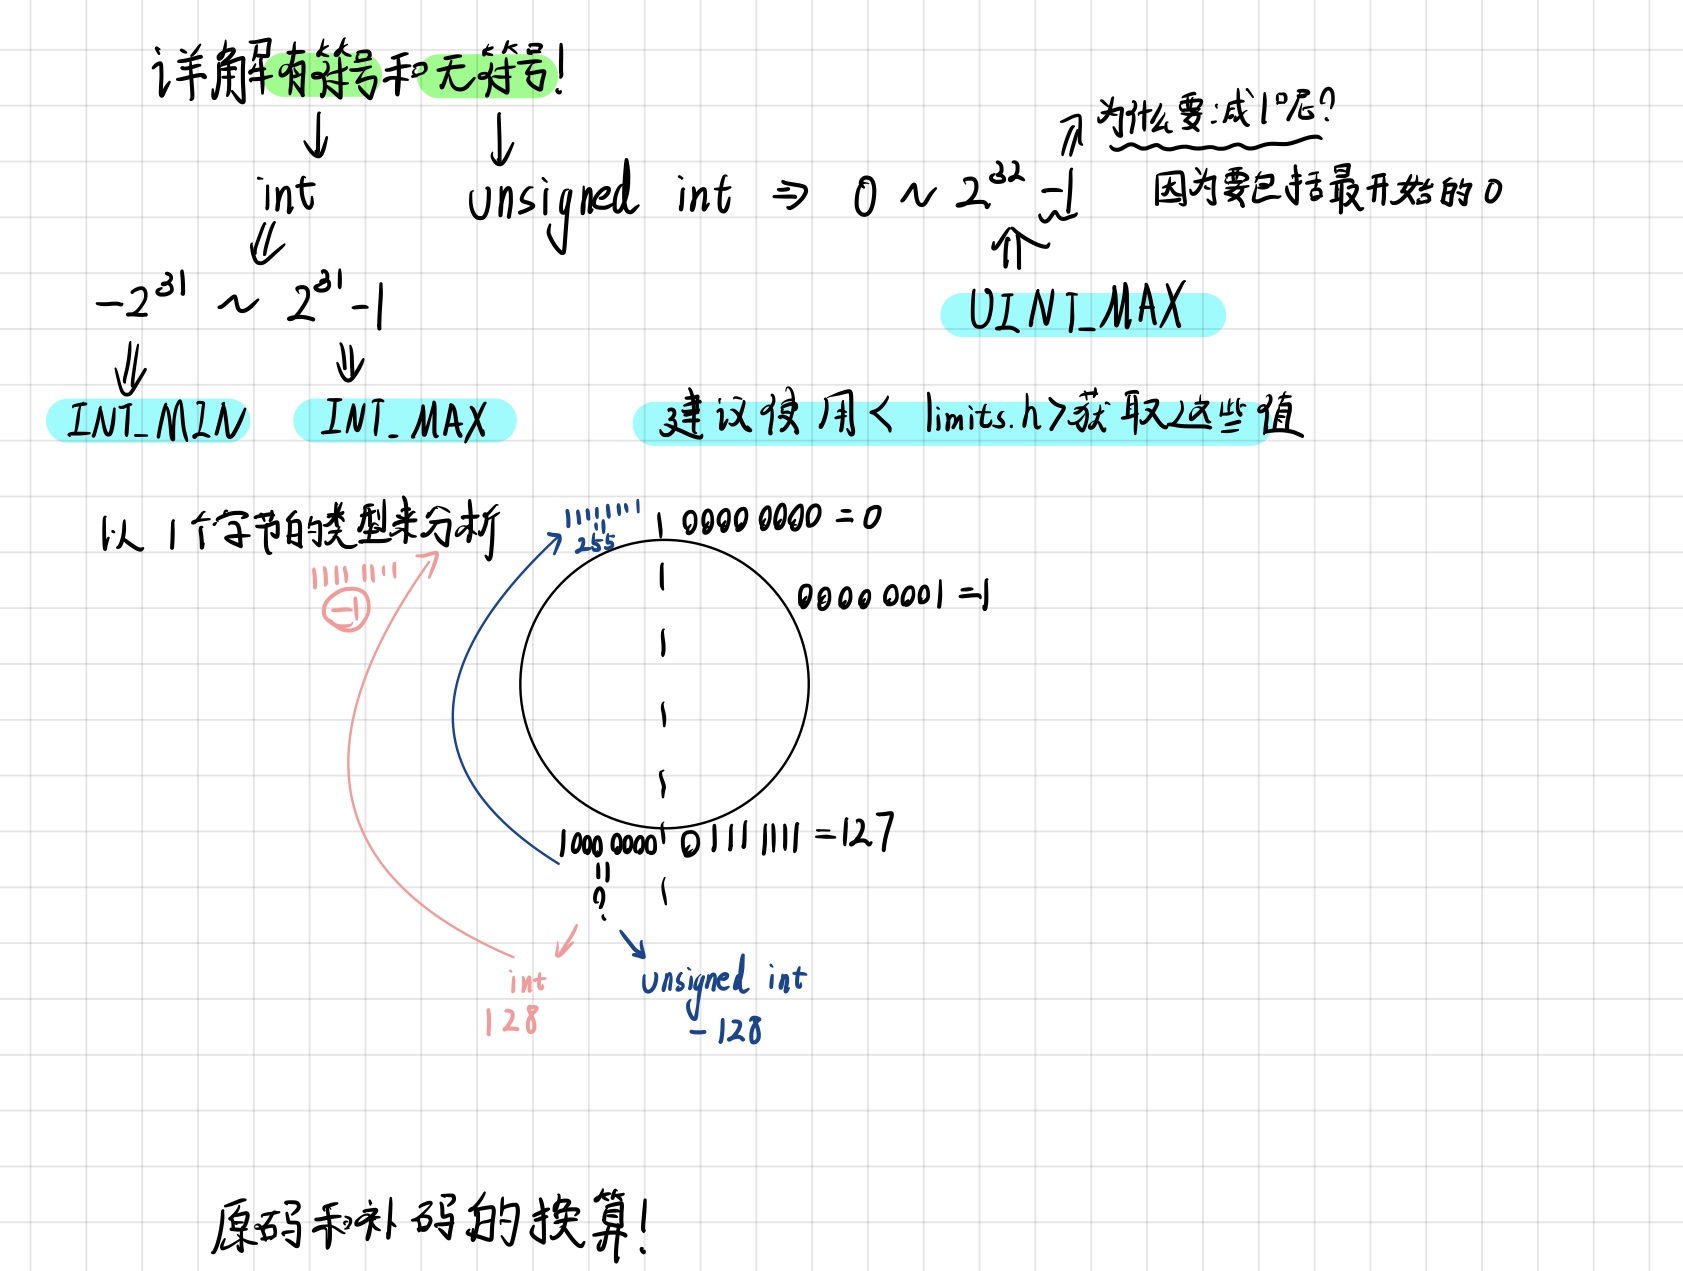 详解有符号和无符号!
为什么要减1呢?
int
unsigned int ⇒ 0 ~ 2³² -1
因为要包括最开始的0
-2³¹ ~ 2³¹ -1
UINT_MAX
INT_MIN
INT_MAX
建议使用< limits.h>获取这些值
以1个字节的类型来分析
11111111
255
0000 0000 = 0
1111 1111
-1
0000 0001 =1
1000 0000
0111 1111 =127
?
int
128
unsigned int
-128
原码和补码的换算!